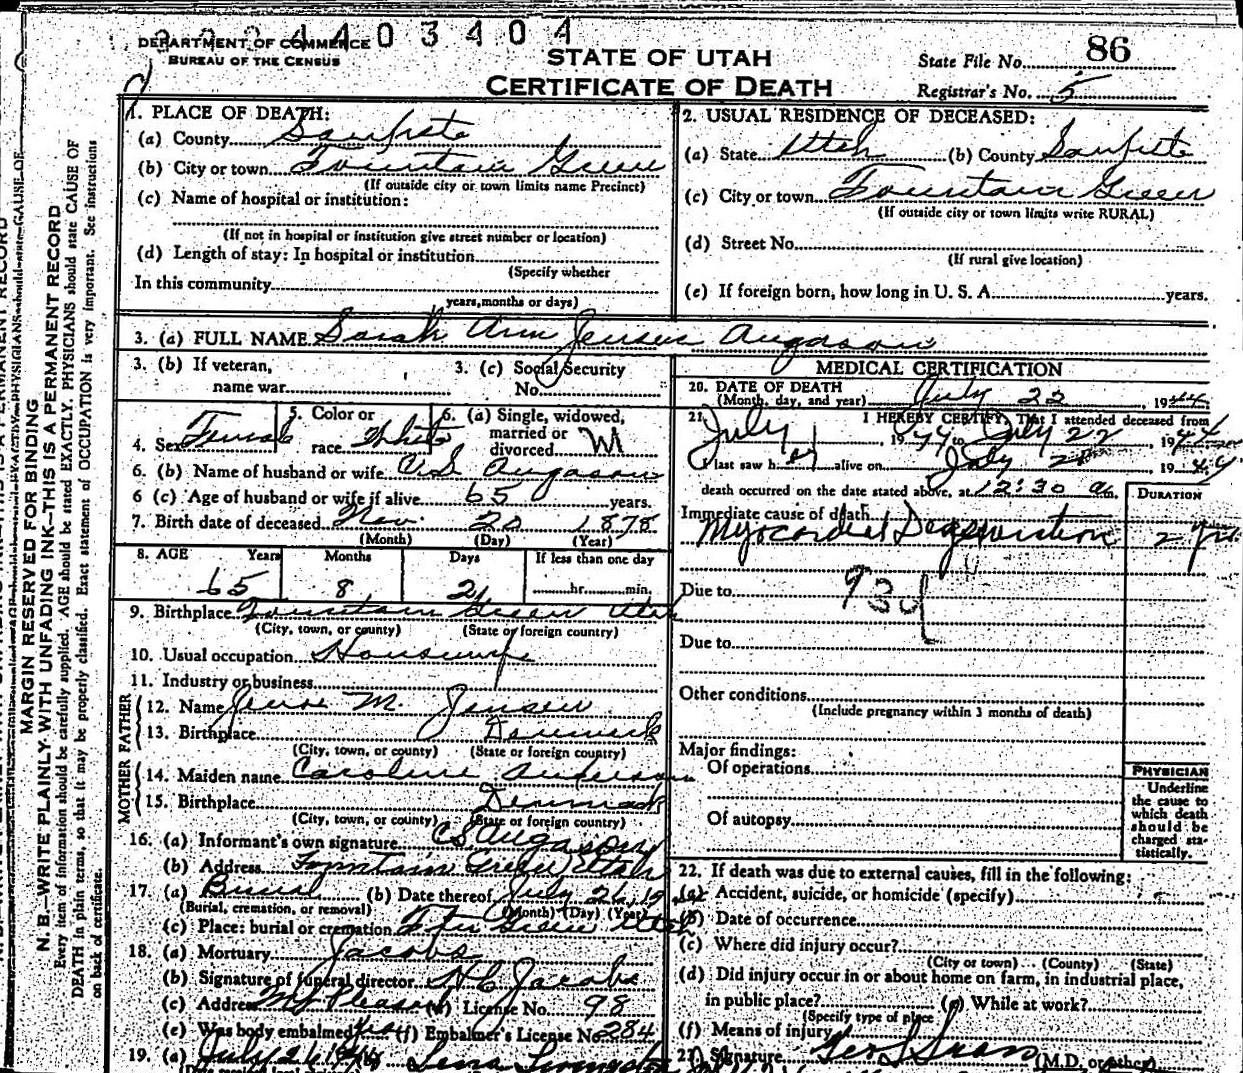 DEPARTMENT OF COMMERCE
BUREAU OF THE CENSUS
4403404
STATE OF UTAH
CERTIFICATE OF DEATH
State File No. 86
Registrar's No. 5
MARGIN RESERVED FOR BINDING
N. B.—WRITE PLAINLY WITH UNFADING INK—THIS IS A PERMANENT RECORD
Every item of information should be carefully supplied. AGE should be stated EXACTLY. PHYSICIANS should state CAUSE OF
DEATH in plain terms, so that it may be properly classified. Exact statement of OCCUPATION is very important. See instructions
on back of certificate.
1. PLACE OF DEATH:
(a) County Sanpete
(b) City or town Fountain Green
(If outside city or town limits name Precinct)
(c) Name of hospital or institution:
(If not in hospital or institution give street number or location)
(d) Length of stay: In hospital or institution
(Specify whether
In this community
years, months or days)
2. USUAL RESIDENCE OF DECEASED:
(a) State Utah (b) County Sanpete
(c) City or town Fountain Green
(If outside city or town limits write RURAL)
(d) Street No.
(If rural give location)
(e) If foreign born, how long in U. S. A. years.
3. (a) FULL NAME Sarah Ann Jensen Augason
3. (b) If veteran,
name war
3. (c) Social Security
No.
4. Sex Female
5. Color or
race White
6. (a) Single, widowed,
married or
divorced M
6. (b) Name of husband or wife C.S. Augason
6 (c) Age of husband or wife if alive 65 years.
7. Birth date of deceased Nov. 20 1878
(Month) (Day) (Year)
8. AGE Years Months Days If less than one day
65 8 2 hr. min.
9. Birthplace Fountain Green Utah
(City, town, or county) (State or foreign country)
10. Usual occupation Housewife
11. Industry or business
FATHER
12. Name M. Jensen
13. Birthplace Denmark
(City, town, or county) (State or foreign country)
MOTHER
14. Maiden name Caroline Anderson
15. Birthplace Denmark
(City, town, or county) (State or foreign country)
16. (a) Informant's own signature C S Augason
(b) Address Fountain Green Utah
17. (a) Burial (b) Date thereof July 26, 19
(Burial, cremation, or removal) (Month) (Day) (Year)
(c) Place: burial or cremation Ftn Green Utah
18. (a) Mortuary Jacobs
(b) Signature of funeral director H C Jacobs
(c) Address Mt Pleasant (d) License No. 98
(e) Was body embalmed Yes (f) Embalmer's License No. 284
19. (a) July 26 1944 Lena
MEDICAL CERTIFICATION
20. DATE OF DEATH
(Month, day, and year) July 22, 1944
21. I HEREBY CERTIFY, That I attended deceased from
July 1, 1944 to July 22, 1944
I last saw her alive on July, 1944
death occurred on the date stated above, at 12:30 a.
DURATION
Immediate cause of death
Myocardial Degeneration 2 yrs.
Due to 93d
Due to
Other conditions
(Include pregnancy within 3 months of death)
Major findings:
Of operations
Of autopsy
PHYSICIAN
Underline
the cause to
which death
should be
charged sta-
tistically.
22. If death was due to external causes, fill in the following:
(a) Accident, suicide, or homicide (specify)
(b) Date of occurrence
(c) Where did injury occur?
(City or town) (County) (State)
(d) Did injury occur in or about home on farm, in industrial place,
in public place? (e) While at work?
(Specify type of place
(f) Means of injury
23. Signature (M.D. or other)